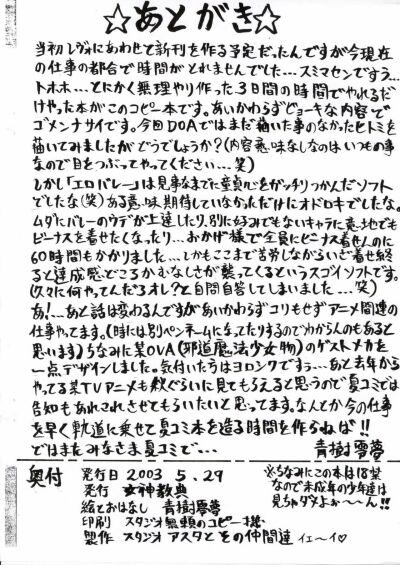 ☆あとがき☆
当初レヴォにあわせて新刊を作る予定だったんですが今現在
の仕事の都合で時間がとれませんでした…スミマセンですぅ…
トホホ…とにかく無理やり作った3日間の時間でやれるだけ
やった本がこのコピー本です。あいかわらずビョーキな内容で
ゴメンナサイです。今回DOAではまだ描いた事のなかったヒトミを
描いてみましたがどうでしょうか?(内容意味なしなのはいつもの事
なので目をつぶってやってください…笑)
しかし「エロバレー」は見事なまでに童貞心をガッチリつかんだソフト
でしたな(笑)ある意味期待していなかっただけにオドロキでしたな。
ムダにバレーのウデが上達したり、別に好みでもないキャラに意地でも
ビーナスを着せたくなったり…おかげ様で全員にビーナス着せんのに
60時間もかかりました…しかもここまで苦労しながらいざ着せ終
ると達成感どころかむなしさが襲ってくるというスゴイソフトです。
(久々に何やってんだろオレ?と自問自答してしまいました…笑)
あ!…あと話は変わるんですがあいかわらずコリもせずアニメ関連の
仕事やってます。(時には別ペンネームになってたりするのでわからんのもあると
思います)ちなみに某OVA(邪道魔法少女物)のゲストメカを
一点デザインしました。気付いた方はヨロシクですぅ…あと去年から
やってる某TVアニメも秋ぐらいに見てもらえると思うので夏コミでは
告知もあれこれさせてもらいたいと思ってます。なんとか今の仕事
を早く軌道に乗せて夏コミ本を造る時間を作らねば!!
ではまたみなさま夏コミで… 青樹零夢
奥付
発行日 2003 5.29
発行 女神教典
絵とおはなし 青樹零夢
印刷 スタジオ無頼のコピー様
製作 スタジオアスタとその仲間達 イェ〜イ♡
※ちなみにこの本は18禁
なので未成年の少年達は
見ちゃダメよぉ〜〜ん!!